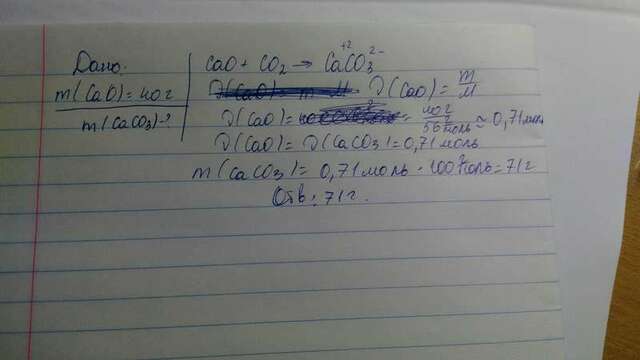 Дано:
m(CaO)=40г
m(CaCO₃)-?
CaO + CO₂ → CaCO₃
+2 2-
ν(CaO)= m/M
ν(CaO)= 40г/56 г/моль ≈ 0,71 моль
ν(CaO)= ν(CaCO₃)=0,71 моль
m(CaCO₃)= 0,71 моль · 100 г/моль=71г
Отв: 71г.